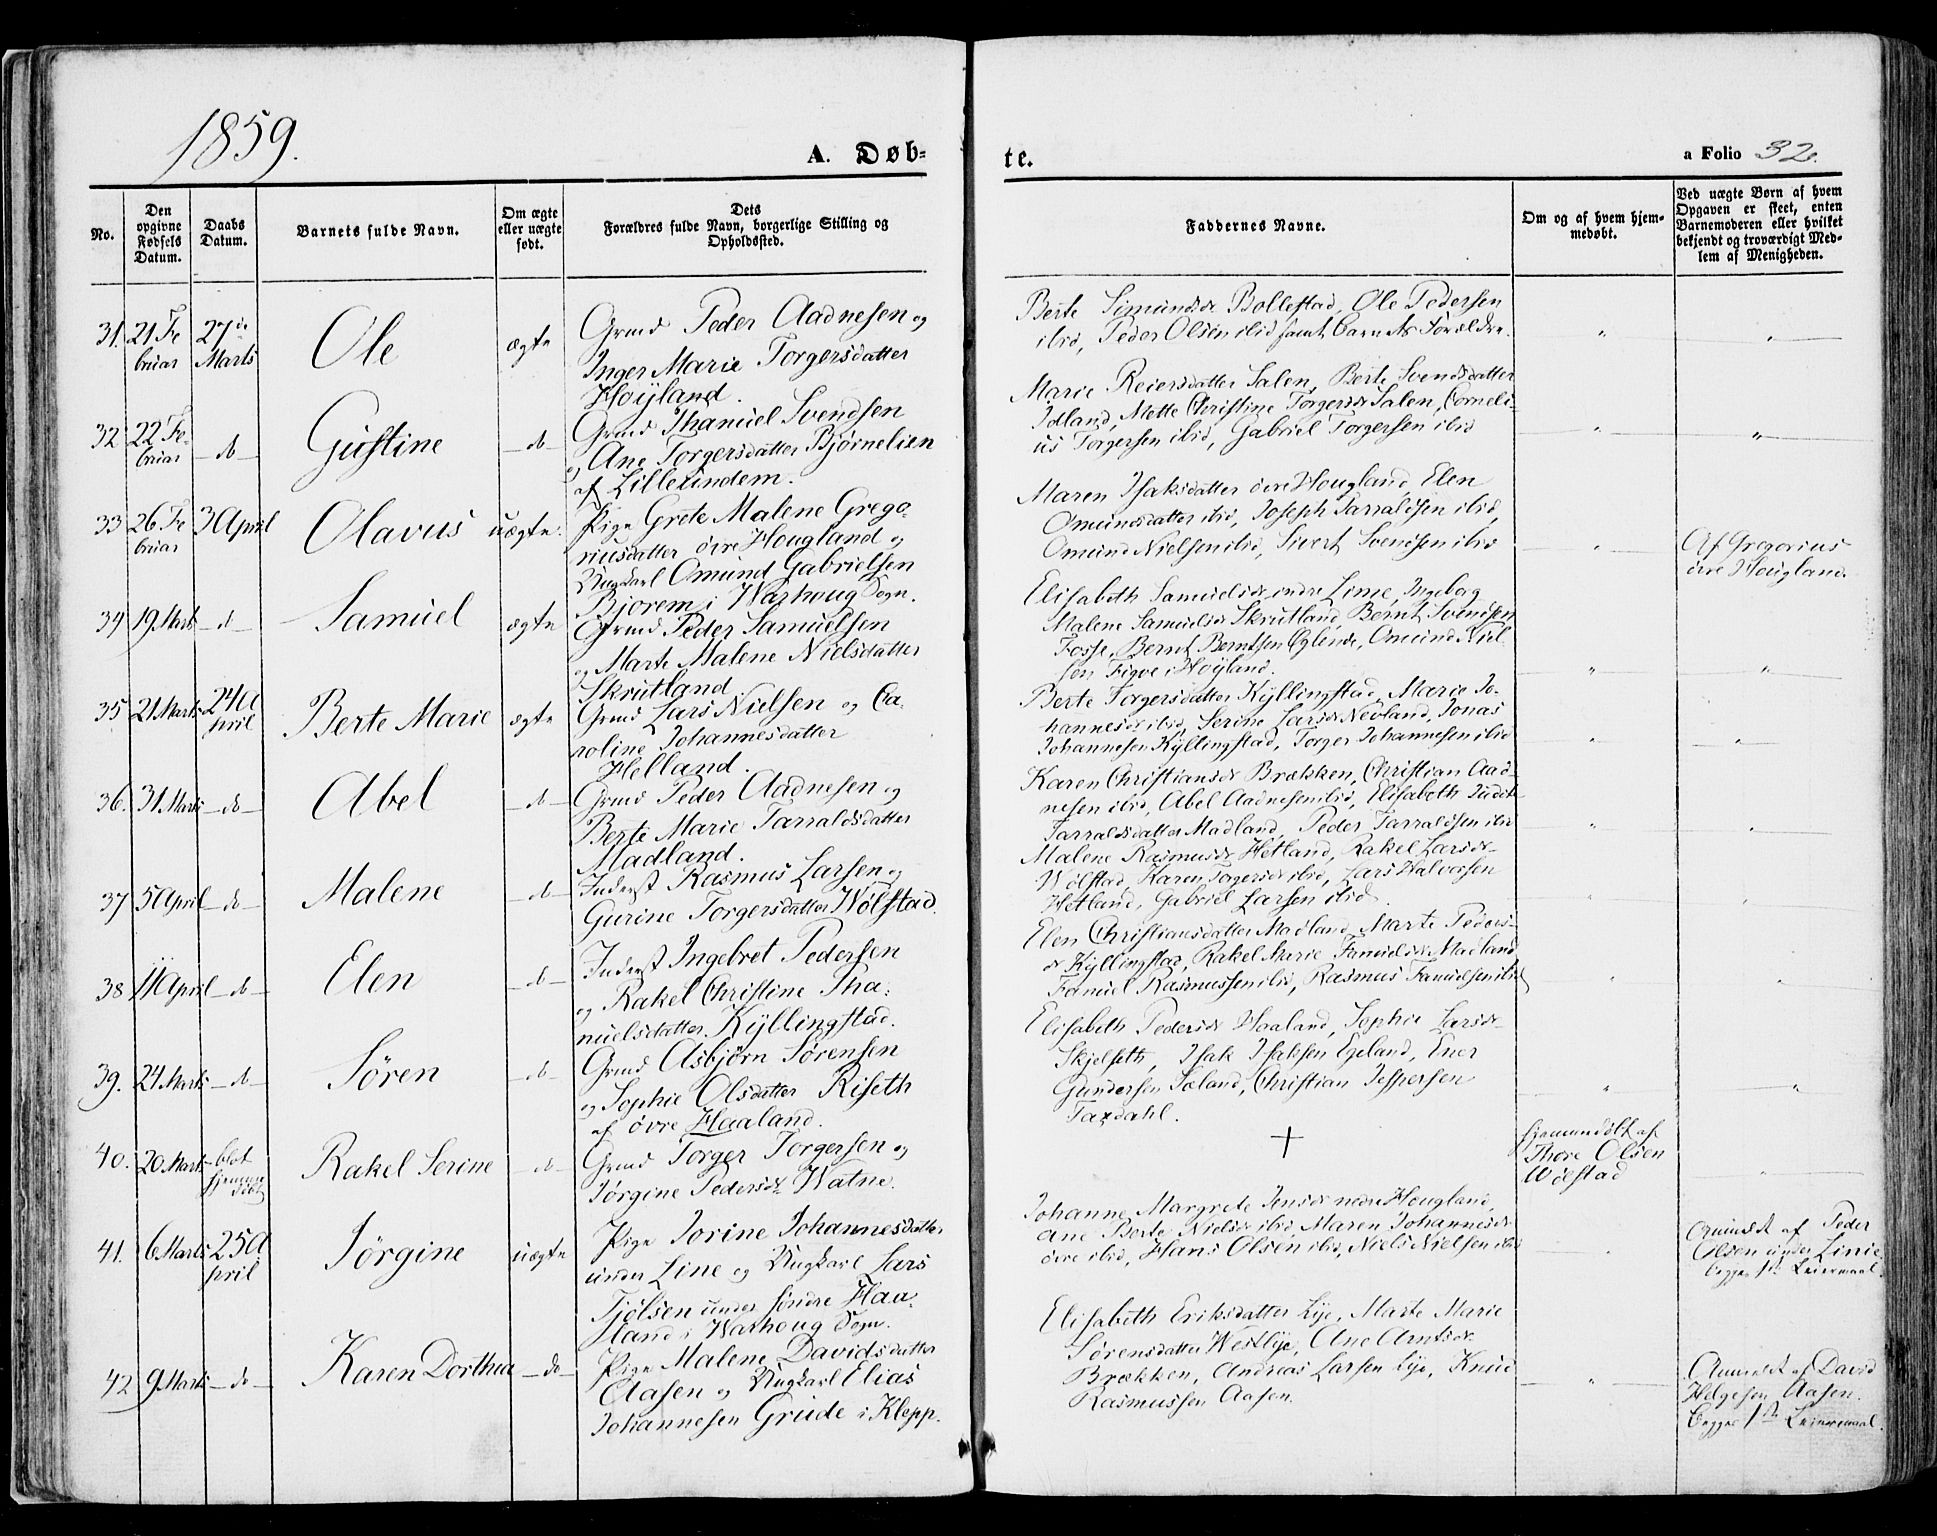 1859.
A. Døb-
te.
a Folio 32.
No.
Den opgivne Fødsels Datum.
Daabs Datum.
Barnets fulde Navn.
Om ægte eller uægte født.
Dets Forældres fulde Navn, borgerlige Stilling og Opholdssted.
Faddernes Navne.
Om og af hvem hjemmedøbt.
Ved uægte Børn af hvem Opgaven er skeet, enten Barnemoderen eller hvilket bekjendt og troværdigt Medlem af Menigheden.
31. 21 Februar 27de Marts Ole ægte
Grmd Peder Aadnesen og
Inger Marie Torgersdatter
Høyland.
Berte Simundsdr Bollestad, Ole Pedersen
ibid, Peder Olsen ibid samt Barnets Forældre.
32 22 Februar do Gustine do
Grmd Thanuel Svendsen
og Ane Torgersdatter Bjørnelien
af Lilleundem.
Marie Reiersdatter Salen, Berte Svendsdatter
Idland, Mette Christine Torgersdr Salen, Corneli-
us Torgersen ibid, Gabriel Torgersen ibid
33 26 Februar 3 April Olavus uægte
Pige Grete Malene Grego-
riusdatter øvre Hougland og
Ungkarl Omund Gabrielsen
Bjorem i Warhoug Sogn.
Maren Isaksdatter øvre Hougland, Elen
Omundsdatter ibid, Joseph Tarraldsen ibid,
Omund Nielsen ibid, Sivert Svendsen ibid
Af Gregorius
øvre Hougland.
34 19 Marts do Samuel ægte
Grmd Peder Samuelsen
og Marte Malene Nielsdatter
Skrutland.
Elisabeth Samuelsdr indre Lime, Ingeborg
Malene Samuelsdr Skrutland, Bernt Svendsen
Fosse, Bernt Berntsen Oglende, Omund Niel-
sen Figve i Høyland.
35 21 Marts 24 April Berte Marie ægte
Grmd Lars Nielsen og Ca-
roline Johannesdatter
Helland.
Berte Torgersdatter Kyllingstad, Marie Jo-
hannesdr ibid, Serine Larsdr Nevland, Jonas
Johannesen Kyllingstad, Torger Johannesen ibid
36. 31 Marts do Abel do
Grmd Peder Aadnesen og
Berte Marie Tarraldsdatter
Madland.
Karen Christiansdr Brækken, Christian Aad-
nesen ibid, Abel Aadnesen ibid, Elisabeth Judit
Tarraldsdatter Madland, Peder Tarraldsen ibid
37 5 April do Malene do
Inderst Rasmus Larsen og
Gurine Torgersdatter Wølstad.
Malene Rasmusdr Hetland, Rakel Larsdr
Wølstad, Karen Torgersdr ibid, Lars Halvorsen
Hetland, Gabriel Larsen ibid.
38 11 April do Elen do
Inderst Ingebret Pedersen
og Rakel Christine Tha-
nuelsdatter Kyllingstad.
Elen Christiansdatter Madland, Marte Peders-
dr Kyllingstad, Rakel Marie Fanuelsdr Madland
Fanuel Rasmussen ibid, Rasmus Fanuelsen ibid
39. 24 Marts do Søren do
Grmd Asbjørn Sørensen
og Sophie Olsdatter Riseth
af øvre Haaland.
Elisabeth Pedersdr Haaland, Sophie Larsdr
Skjelseth, Isak Isaksen Egeland, Ener
Gundersen Sæland, Christian Jespersen
Taxdahl.
40. 20 Marts blot hjemmedøbt Rakel Serine do
Grmd Torger Torgersen og
Jørgine Pedersdr Watne.
+
hjemmedøbt af
Thore Olsen
Wølstad
41. 6 Marts 25 April Jørgine uægte
Pige Jorine Johannesdatter
under Line og Ungkarl Lars
Tjølsen under søndre Haa-
land i Warhoug Sogn.
Johanne Margrete Jensdr nedre Hougland,
Ane Berte Nielsdr ibid, Maren Johannesdr
øvre ibid, Hans Olsen ibid, Niels Nielsen ibid
Anmeldt af Peder
Olsen under Linie
begges 1ste Leiermaal.
42 9 Marts do Karen Dorthea do
Pige Malene Davidsdatter
Aasen og Ungkarl Elias
Johannesen Grude i Klepp.
Elisabeth Eriksdatter Lye, Marte Marie
Sørensdatter Westlye, Ane Arntsdr
Brækken, Andreas Larsen Lye, Knud
Rasmussen Aasen.
Anmeldt af David
Helgesen Aasen.
begges 1ste Leiermaal.